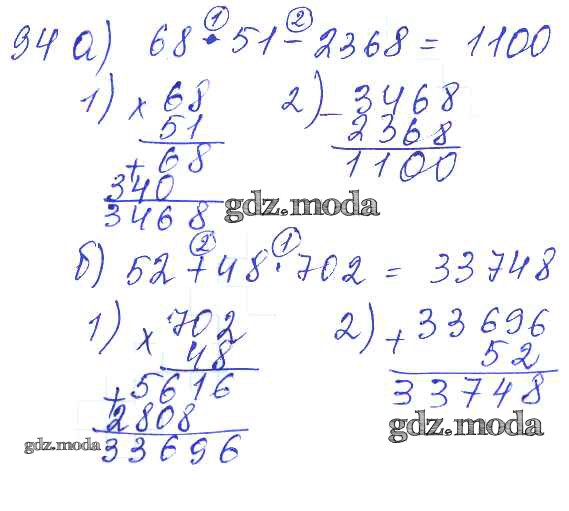 94 а) 68 · 51 − 2368 = 1100
① ②
1) × 68
51
+ 68
340
3468
2) − 3468
2368
1100
gdz.moda
б) 52 + 48 · 702 = 33748
② ①
1) × 702
48
+ 5616
2808
33696
2) + 33696
52
33748
gdz.moda
gdz.moda